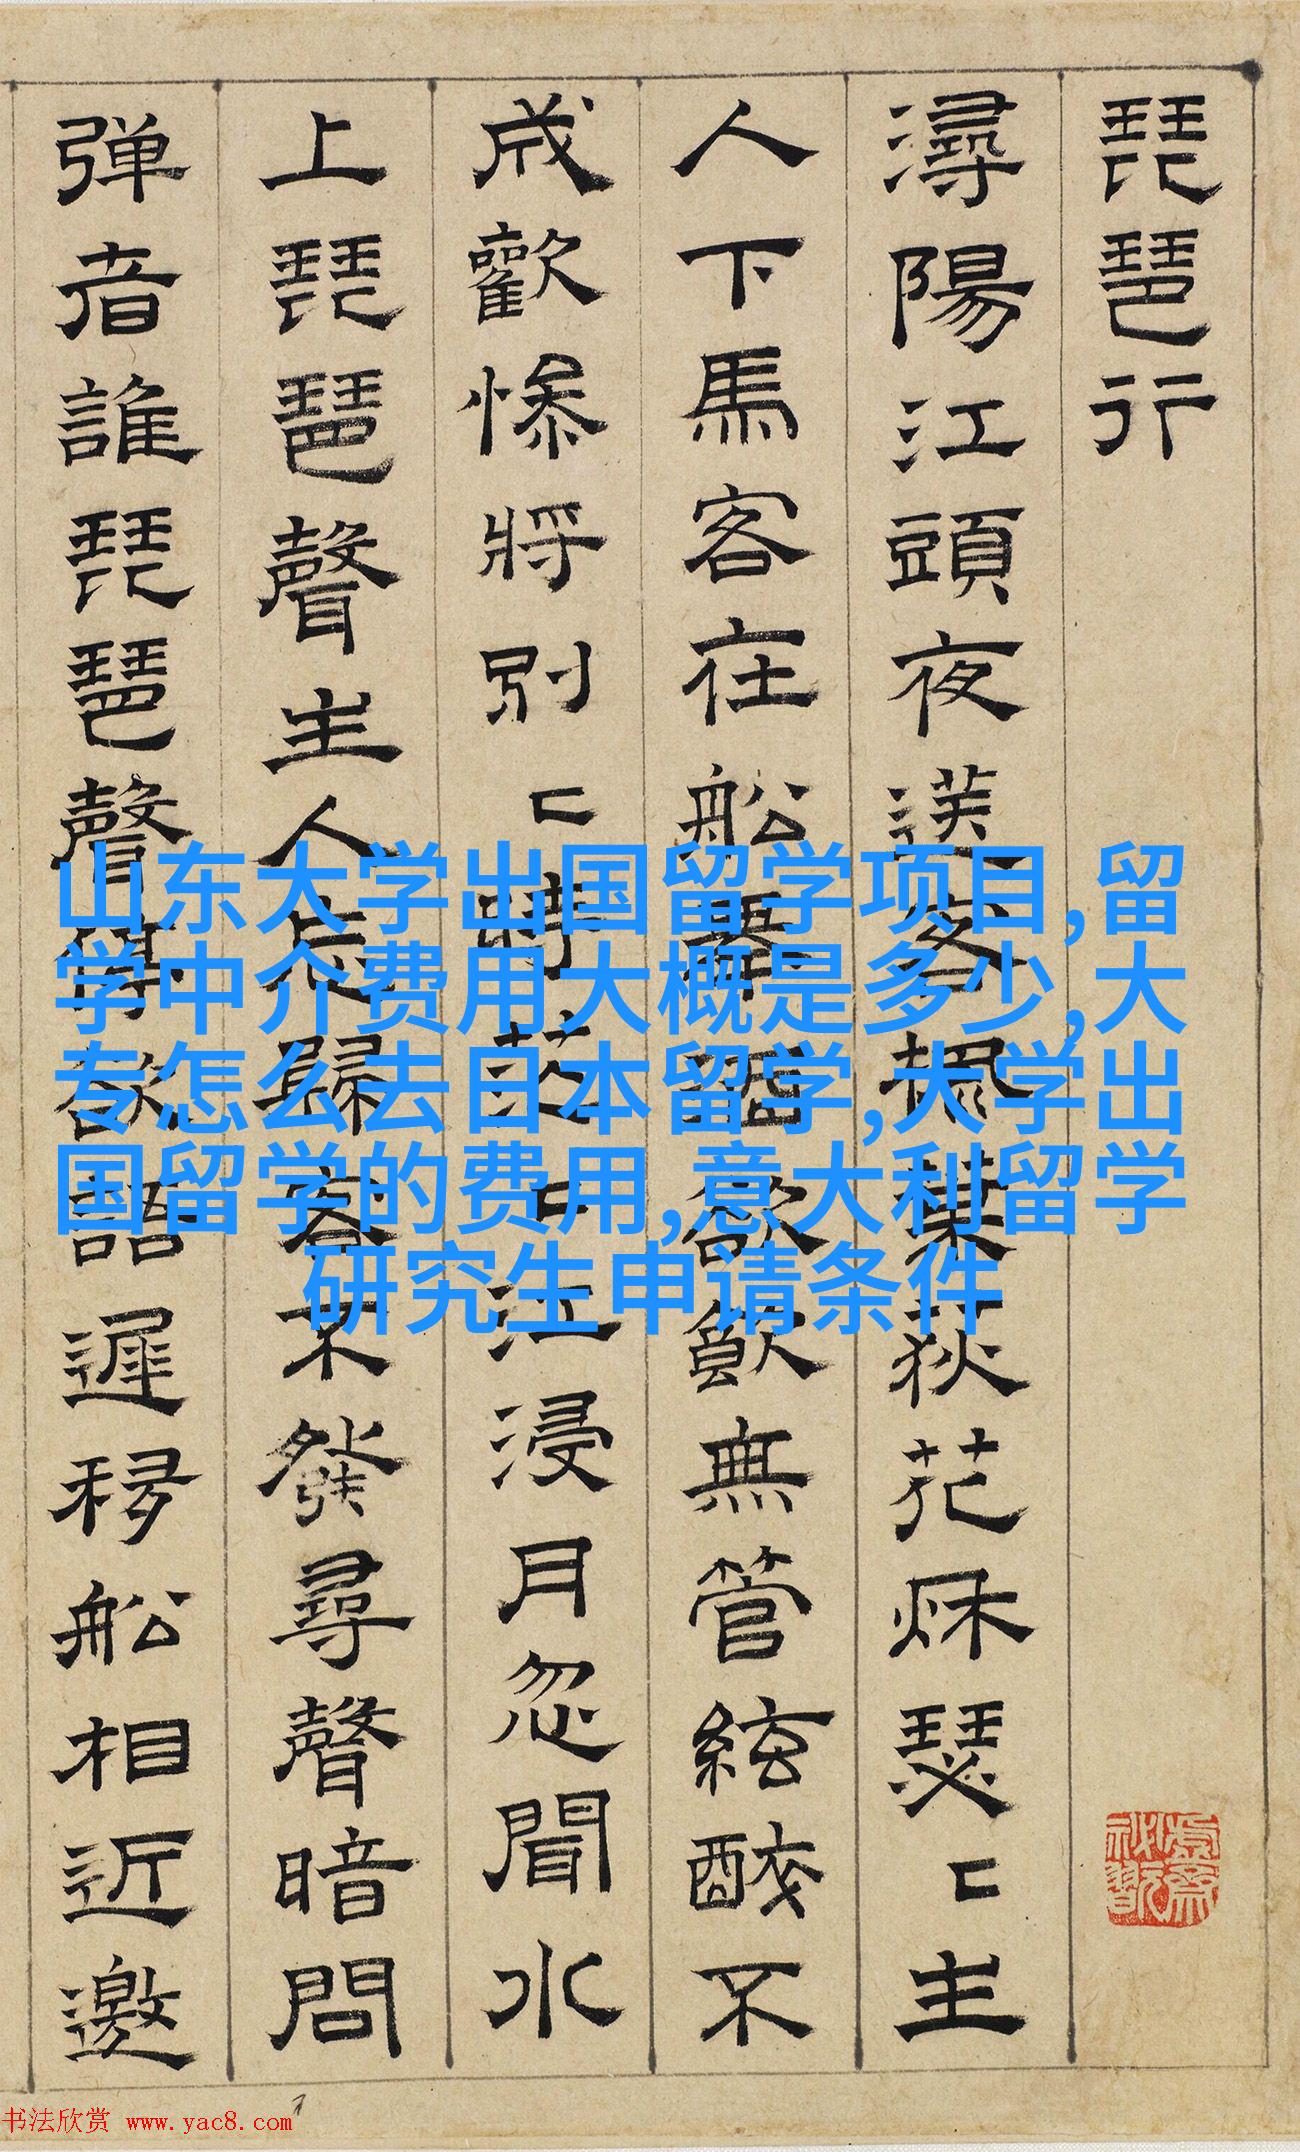 琵琶行
潯陽江頭夜送客楓葉荻花秋瑟〻主
人下馬客在船舉酒欲飲無管絃醉不
成歡慘將別〻時茫〻江浸月忽聞水
上琵琶聲主人忘歸客不發尋聲暗問
弹者誰琵琶聲停欲語遲移船相近邀
山东大学出国留学项目,留
学中介费用大概是多少,大
专怎么去日本留学,大学出
国留学的费用,意大利留学
研究生申请条件
书法欣赏 www.yac8.com